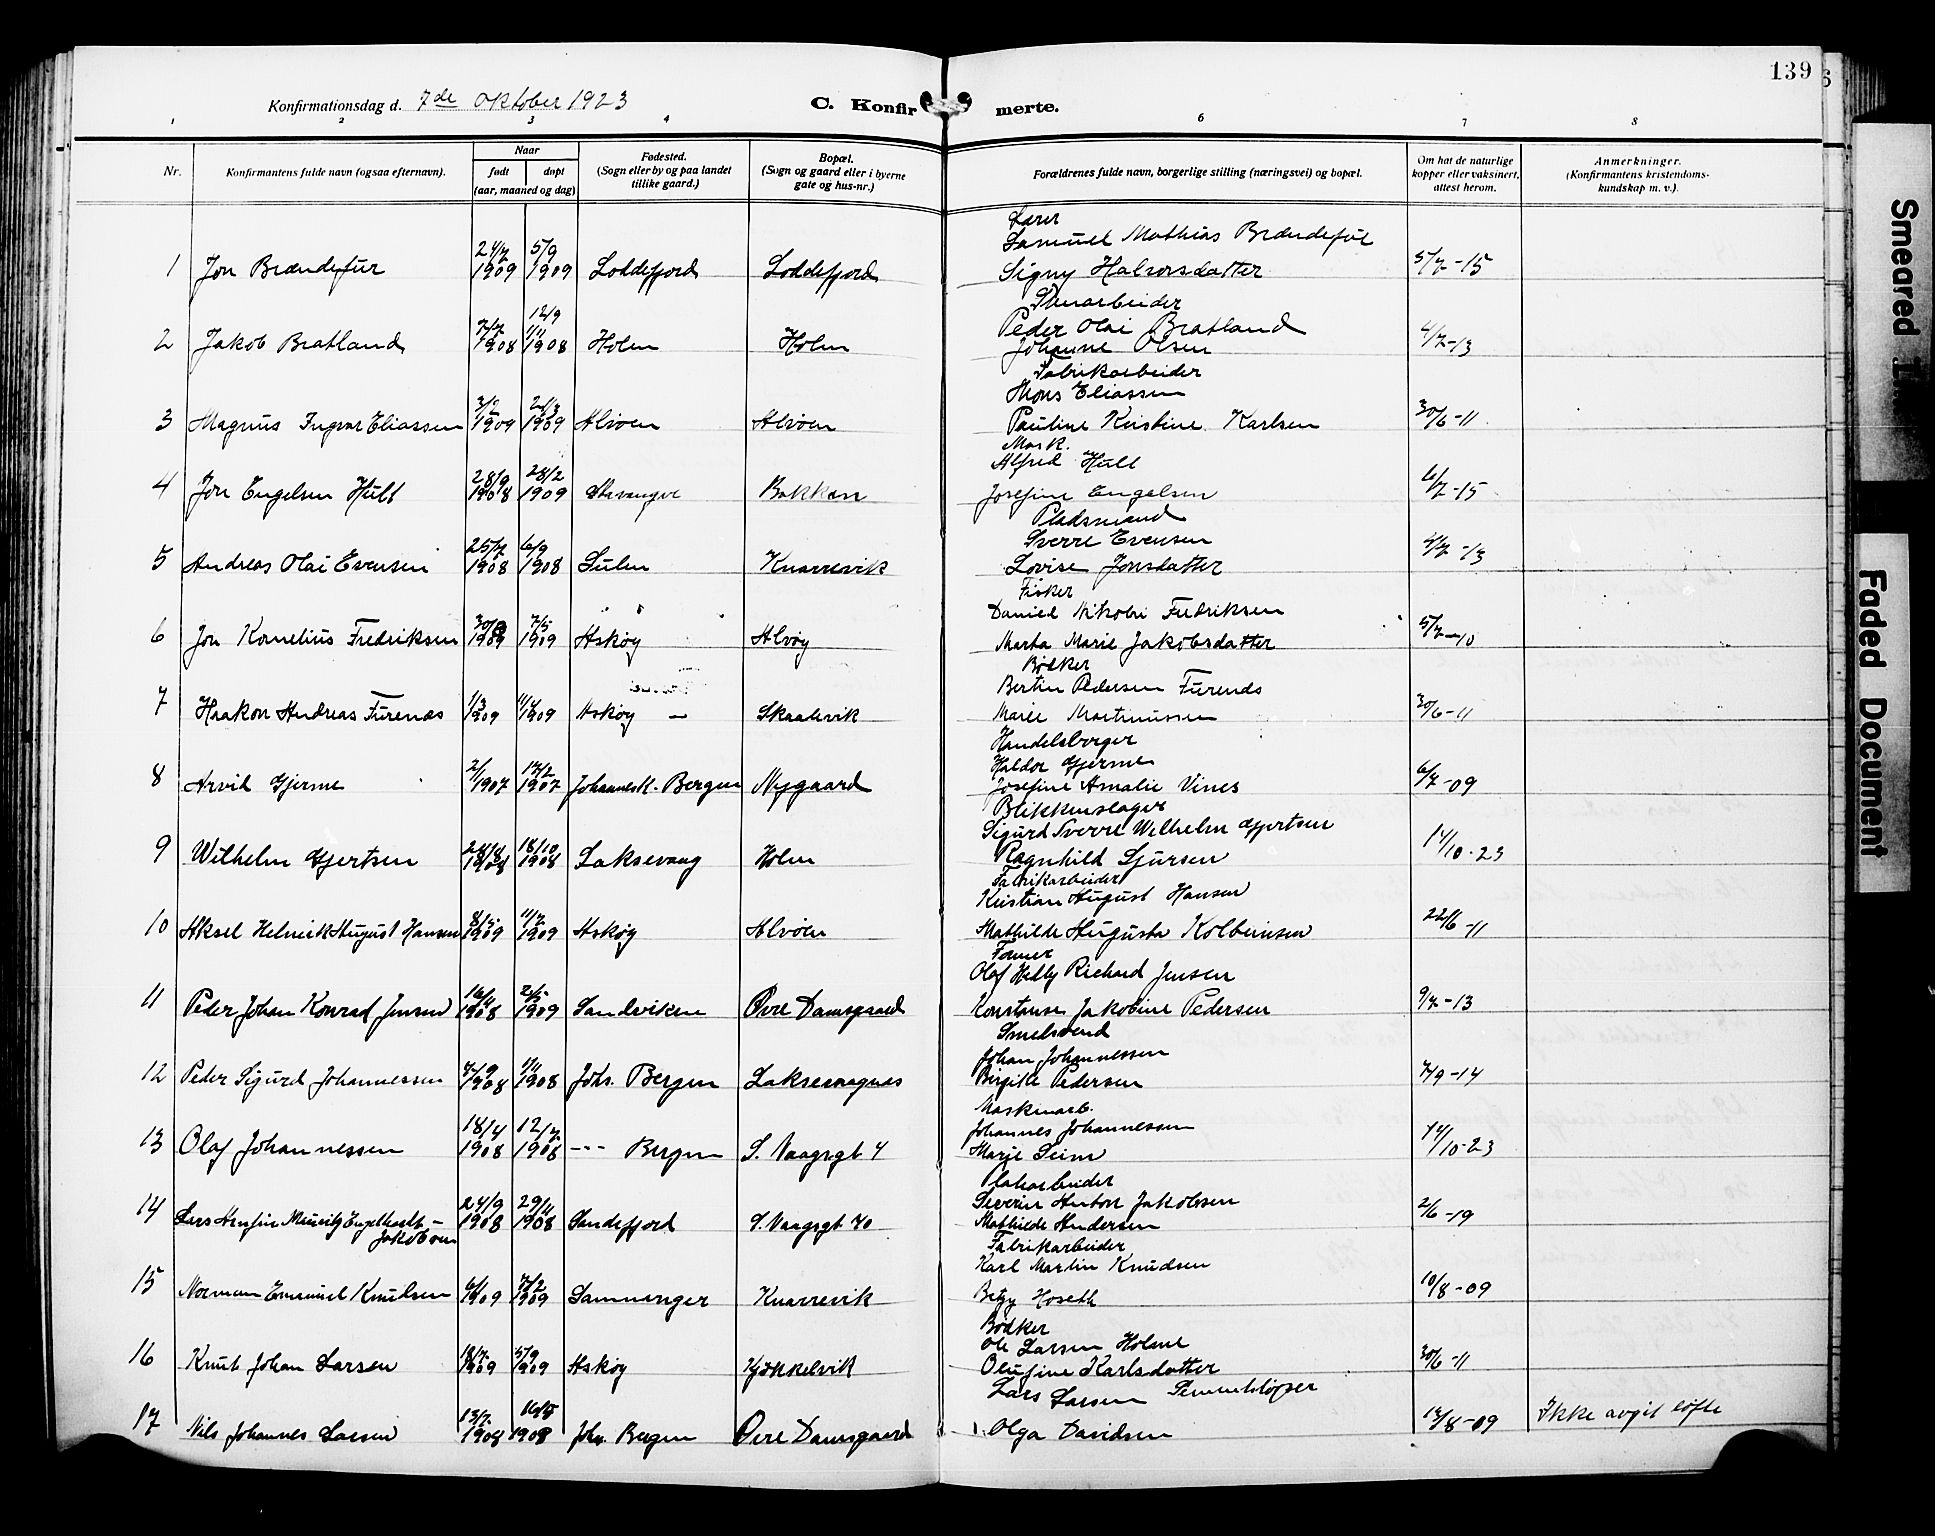 139
Konfirmationsdag d. 7de Oktober 1923
C. Konfirmerte.
1 2 3 4 6 7 8
Nr.
Konfirmantens fulde navn (ogsaa efternavn).
Naar
født døpt
(aar, maaned og dag)
Fødested.
(Sogn eller by og paa landet
tillike gaard.)
Bopæl.
(Sogn og gaard eller i byerne
gate og hus-nr.)
Forældrenes fulde navn, borgerlige stilling (næringsvei) og bopæl.
Om hat de naturlige
kopper eller vaksinert,
attest herom.
Anmerkninger.
(Konfirmantens kristendoms-
kundskap m. v.).
Lærer
Samuel Mathias Brændejur
1 Jon Brændejur 24/7 1909 5/9 1909 Loddefjord Loddefjord Signy Halvorsdatter 5/7-15
Stenarbeider
Peder Olai Bratland
2 Jakob Bratland 7/7 1908 12/9 1/11 1908 Holen Holen Johanne Olsen 4/7-13
Fabrikarbeider
Mons Eliassen
3 Magnus Ingvar Eliassen 3/2 1909 21/3 1909 Alvøen Alvøen Pauline Kristine Karlsen 30/6-11
Mask.
Alfred Hult
4 Jon Engelsen Hult 28/9 1908 28/2 1909 Stavanger Bakken Josefine Engelsen 6/7-15
Pladsmand
Sverre Evensen
5 Andreas Olai Evensen 25/7 1908 6/9 1908 Sulen Knarrevik Lovise Jonsdatter 4/7-13
Fisker
Daniel Nikolai Fredriksen
6 Jon Kornelius Fredriksen 1909 7/5 1909 Askøy Alvøy Marta Marie Jakobsdatter 5/7-10
Bødker
Bertin Pedersen Furenæs
7 Haakon Andreas Furenæs 1/3 1909 11/4 1909 Askøy — Skaalevik Marie Martinussen 30/6-11
Handelsborger
Haldor Gjerme
8 Arvid Gjerme 2/1 1907 17/2 1907 Johannesk. Bergen Nygaard Josefine Amalie Vines 6/7-09
Blikkenslager
Sigurd Sverre Wilhelm Gjertsen
9 Wilhelm Gjertsen 1908 18/10 1908 Laksevaag Holen Ragnhild Sjursen 14/10-23
Fabrikarbeider
Kristian August Hansen
10 Aksel Helnrik August Hansen 8/5 1909 11/7 1909 Askøy Alvøen Mathilde Augusta Kolbeinsen 22/6-11
Former
Olaf Helly Richard Jensen
11 Peder Johan Konrad Jensen 16/11 1908 2/5 1909 Sandviken Øvre Damsgaard Konstanse Jakobine Pedersen 9/7-13
Smedsvend
Johan Johannessen
12 Peder Sigurd Johannessen 7/9 1908 1/11 1908 Johs. Bergen Laksevaagnæs Birgitte Pedersen 7/9-14
Maskinarb.
Johannes Johannessen
13 Olaf Johannessen 18/4 1908 12/7 1908 --- Bergen S. Vaagsgt 4 Marie Seim 14/10-23
Platearbeider
Severin Anton Jakobsen
14 Lars Arnfin Mauritz Engelhardt - Jakobsen 24/9 1908 29/11 1908 Sandefjord S. Vaagsgt 70 Mathilde Andersen 2/6-19
Fabrikarbeider
Karl Martin Knudsen
15 Norman Emanuel Knudsen 6/1 1909 7/2 1909 Samnanger Knarrevik Betzy Hoseth 10/8-09
Bødker
Ole Larsen Holme
16 Knut Johan Larsen 18/7 1909 5/9 1909 Askøy Kjøkkelvik Olufine Karlsdatter 30/6-11
Lars Larsen
17 Nils Johannes Larsen 13/7 1908 1908 Joh. Bergen Øvre Damsgaard Olga Davidsen 14/8-09 Ikke avgit løfte
Smeared
Faded Document